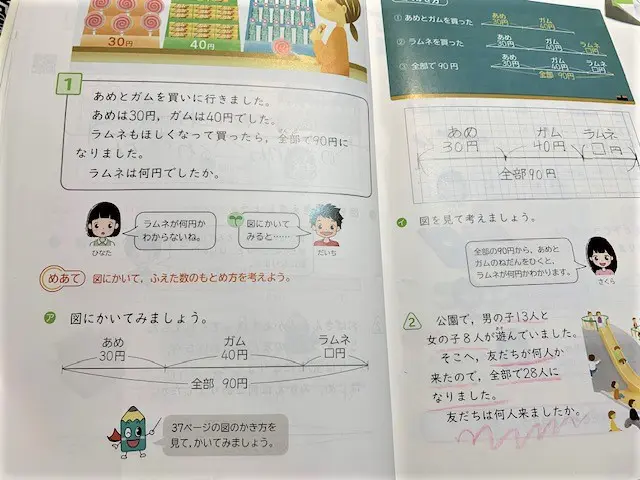 30円
40円
1
あめとガムを買いに行きました。
あめは30円，ガムは40円でした。
ラムネもほしくなって買ったら，全部で90円に
なりました。
ラムネは何円でしたか。
ラムネが何円か
わからないね。
ひなた
図にかいて
みると……
だいち
めあて 図にかいて，ふえた数のもとめ方を考えよう。
ア 図にかいてみましょう。
あめ ガム ラムネ
30円 40円 □円
全部 90円
37ページの図のかき方を
見て，かいてみましょう。
① あめとガムを買った
あめ ガム
30円 40円
② ラムネを買った
あめ ガム ラムネ
30円 40円 □円
③ 全部で90円
あめ ガム ラムネ
30円 40円 □円
全部 90円
あめ ガム ラムネ
30円 40円 □円
全部90円
イ 図を見て考えましょう。
全部の90円から，あめと
ガムのねだんをひくと，
ラムネが何円かわかります。
さくら
2 公園で，男の子13人と
女の子8人が遊んでいました。
そこへ，友だちが何人か
来たので，全部で28人に
なりました。
友だちは何人来ましたか。